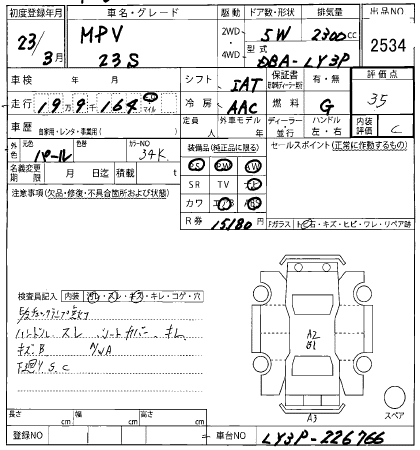 初度登録年月 車名・グレード 駆動 ドア数・形状 排気量 出品NO
23/3月 MPV 23S 2WD・4WD 5W 2300cc 2534
型式 DBA-LY3P
車検 年 月 シフト IAT 保証書 有・無 評価点
走行 19万9千164 マイル 冷房 AAC 燃料 G 3.5
車歴 自家用・レンタ・事業用( ) 定員 人 外車モデル 年 ディーラー・並行 ハンドル 左・右 内装評価 C
外色 元色 パール 色替 カラーNO 34K 装備品(純正品に限る) セールスポイント(正常に作動するもの)
名義変更期限 月 日迄 積載 t PS PW
注意事項(欠品・修復・不具合箇所および状態) SR TV
カワ
R券 15180円 Fガラス トビ石・キズ・ヒビ・ワレ・リペア跡
検査員記入 内装 汚レ・スレ・キズ・キレ・コゲ・穴
ハンドル スレ シートカバー キレ
キズB
下廻りS.C
A2
A3
スペア
長さ cm 幅 cm 高さ cm
登録NO 車台NO LY3P-226766